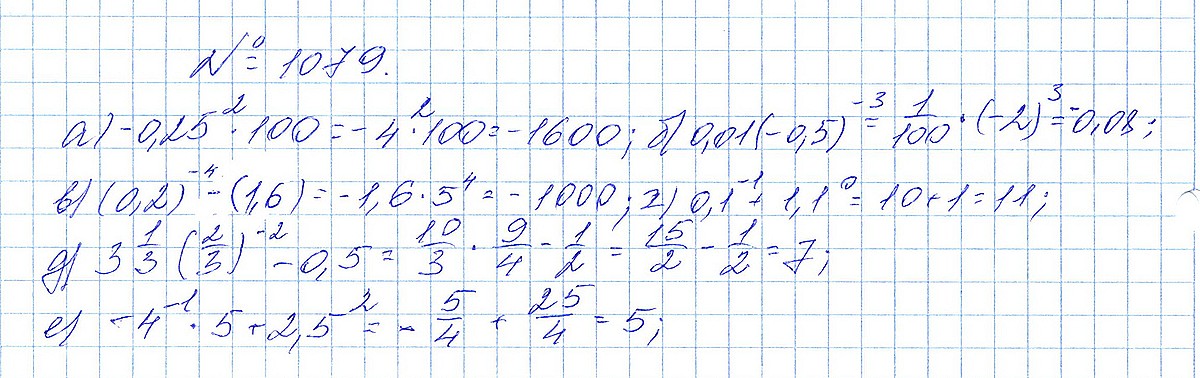 № 1079.
а) -0,25² · 100 = -4² · 100 = -1600; б) 0,01(-0,5)⁻³ = 1/100 · (-2)³ = -0,08;
в) (0,2)⁻⁴ · (1,6) = -1,6 · 5⁴ = -1000; г) 0,1⁻¹ + 1,1⁰ = 10 + 1 = 11;
д) 3 1/3 (2/3)⁻² - 0,5 = 10/3 · 9/4 - 1/2 = 15/2 - 1/2 = 7;
е) -4⁻¹ · 5 + 2,5² = - 5/4 + 25/4 = 5;